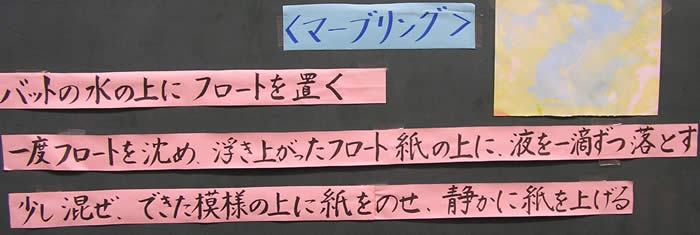 <マーブリング>
バットの水の上に フロートを置く
一度フロートを沈め、浮き上がったフロート紙の上に、液を一滴ずつ落とす
少し混ぜ、できた模様の上に紙をのせ、静かに紙を上げる